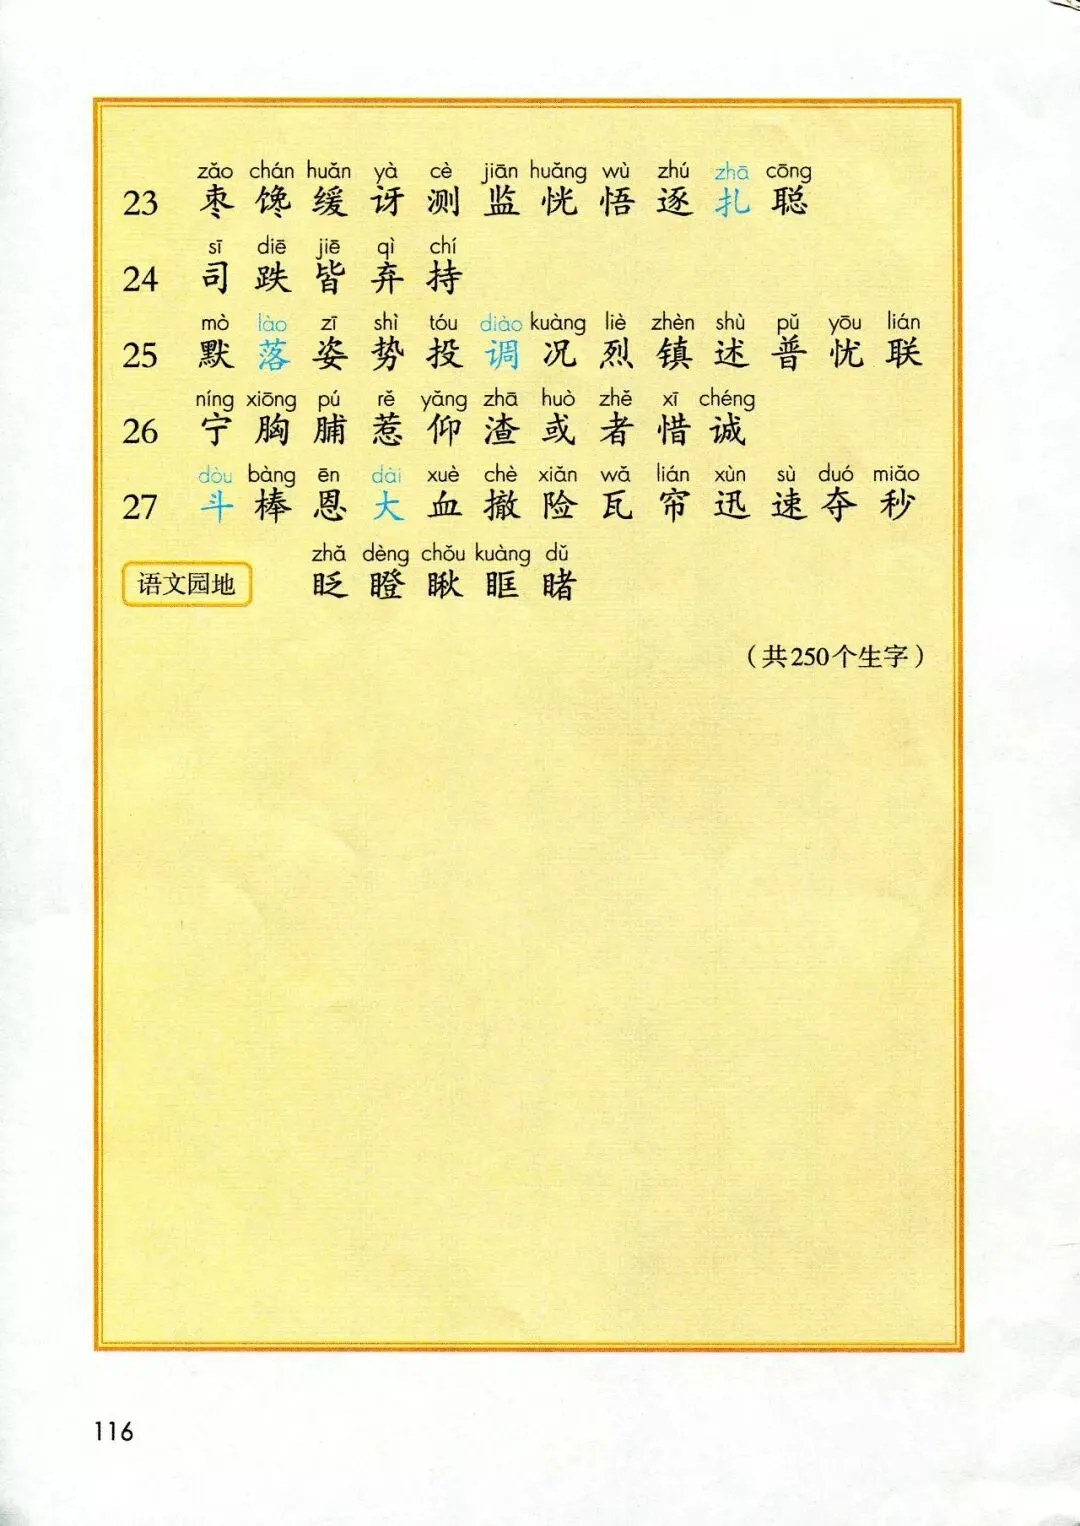 zǎo chán huǎn yà cè jiān huǎng wù zhú zhā cōng
23 枣 馋 缓 讶 测 监 恍 悟 逐 扎 聪
sī diē jiē qì chí
24 司 跌 皆 弃 持
mò lào zī shì tóu diào kuàng liè zhèn shù pǔ yōu lián
25 默 落 姿 势 投 调 况 烈 镇 述 普 忧 联
níng xiōng pú rě yǎng zhā huò zhě xī chéng
26 宁 胸 脯 惹 仰 渣 或 者 惜 诚
dòu bàng ēn dài xuè chè xiǎn wǎ lián xùn sù duó miǎo
27 斗 棒 恩 大 血 撤 险 瓦 帘 迅 速 夺 秒
zhǎ dèng chǒu kuàng dǔ
语文园地 眨 瞪 瞅 眶 睹
（共250个生字）
116